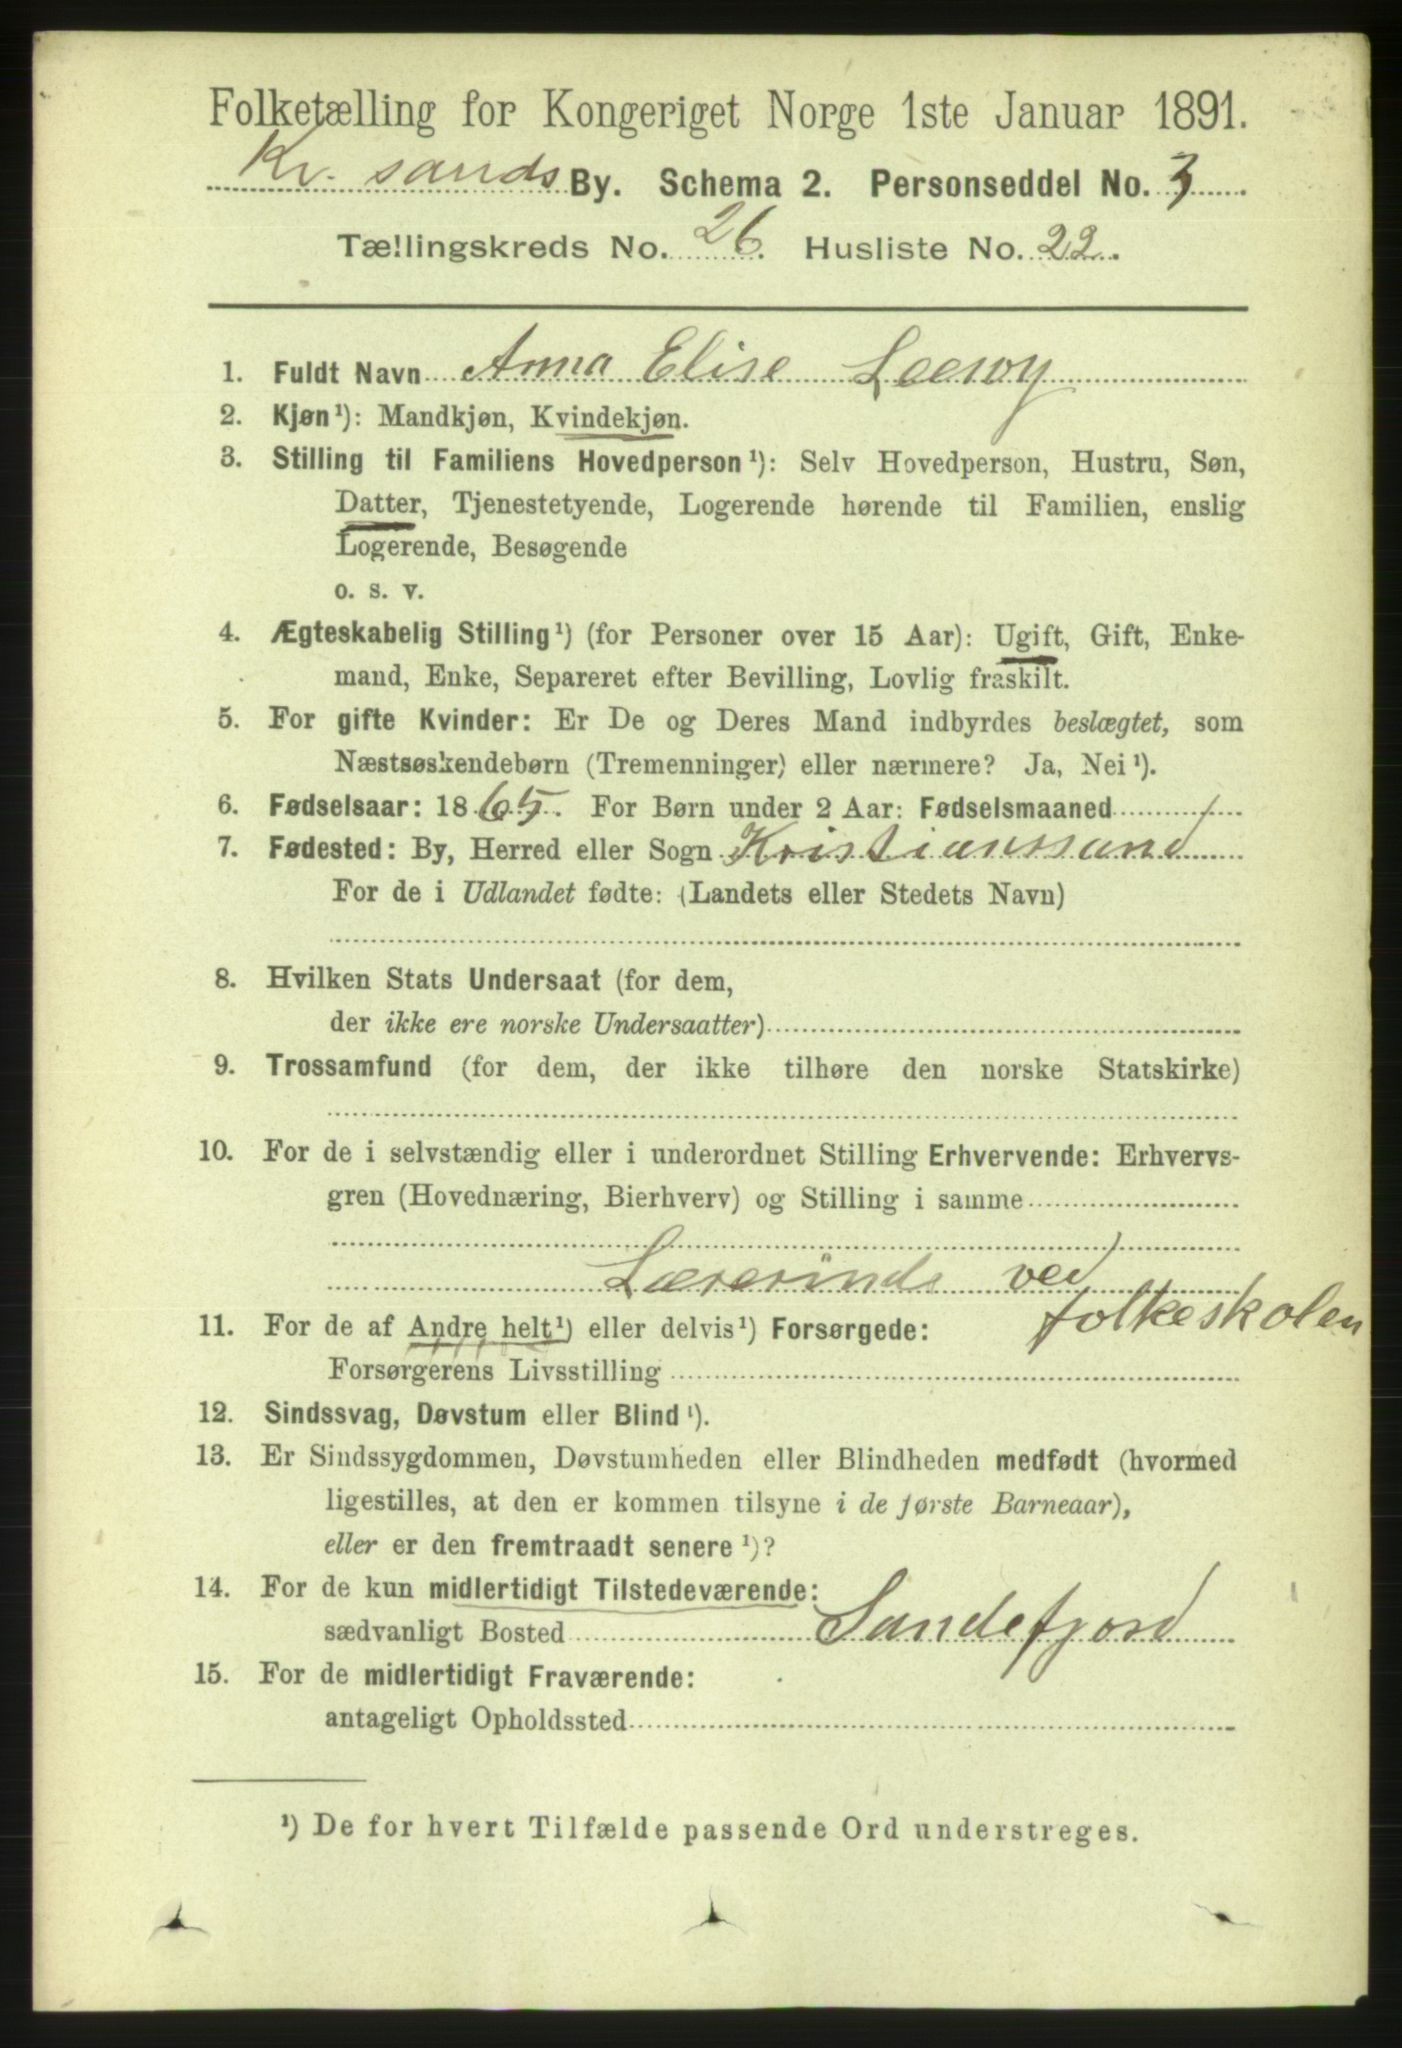 Folketælling for Kongeriget Norge 1ste Januar 1891.
Kr. sands By. Schema 2. Personseddel No. 3
Tællingskreds No. 26. Husliste No. 22.
1. Fuldt Navn Anna Elise
2. Kjøn¹): Mandkjøn, Kvindekjøn.
3. Stilling til Familiens Hovedperson¹): Selv Hovedperson, Hustru, Søn,
Datter, Tjenestetyende, Logerende hørende til Familien, enslig
Logerende, Besøgende
o. s. v.
4. Ægteskabelig Stilling¹) (for Personer over 15 Aar): Ugift, Gift, Enke-
mand, Enke, Separeret efter Bevilling, Lovlig fraskilt.
5. For gifte Kvinder: Er De og Deres Mand indbyrdes beslægtet, som
Næstsøskendebørn (Tremenninger) eller nærmere? Ja, Nei¹).
6. Fødselsaar: 1865. For Børn under 2 Aar: Fødselsmaaned
7. Fødested: By, Herred eller Sogn Kristianssand
For de i Udlandet fødte: (Landets eller Stedets Navn)
8. Hvilken Stats Undersaat (for dem,
der ikke ere norske Undersaatter)
9. Trossamfund (for dem, der ikke tilhøre den norske Statskirke)
10. For de i selvstændig eller i underordnet Stilling Erhvervende: Erhvervs-
gren (Hovednæring, Bierhverv) og Stilling i samme
Lærerinde ved
folkeskolen
11. For de af Andre helt¹) eller delvis¹) Forsørgede:
Forsørgerens Livsstilling
12. Sindssvag, Døvstum eller Blind¹).
13. Er Sindssygdommen, Døvstumheden eller Blindheden medfødt (hvormed
ligestilles, at den er kommen tilsyne i de første Barneaar),
eller er den fremtraadt senere¹)?
14. For de kun midlertidigt Tilstedeværende:
sædvanligt Bosted Sandefjord
15. For de midlertidigt Fraværende:
antageligt Opholdssted
¹) De for hvert Tilfælde passende Ord understreges.